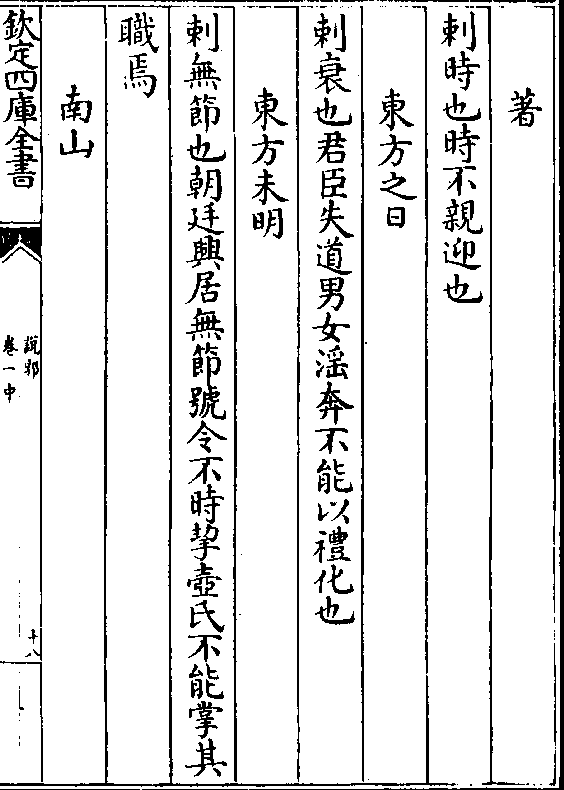 著
刺時也時不親迎也
東方之日
刺衰也君臣失道男女淫奔不能以禮化也
東方未明
刺無節也朝廷興居無節號令不時挈壺氏不能掌其
職焉
南山
欽定四庫全書
說郛
卷一中
十八